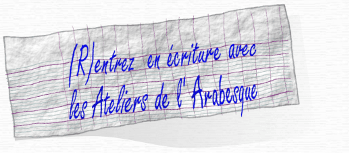 (R)entrez en écriture avec
les Ateliers de l'Arabesque